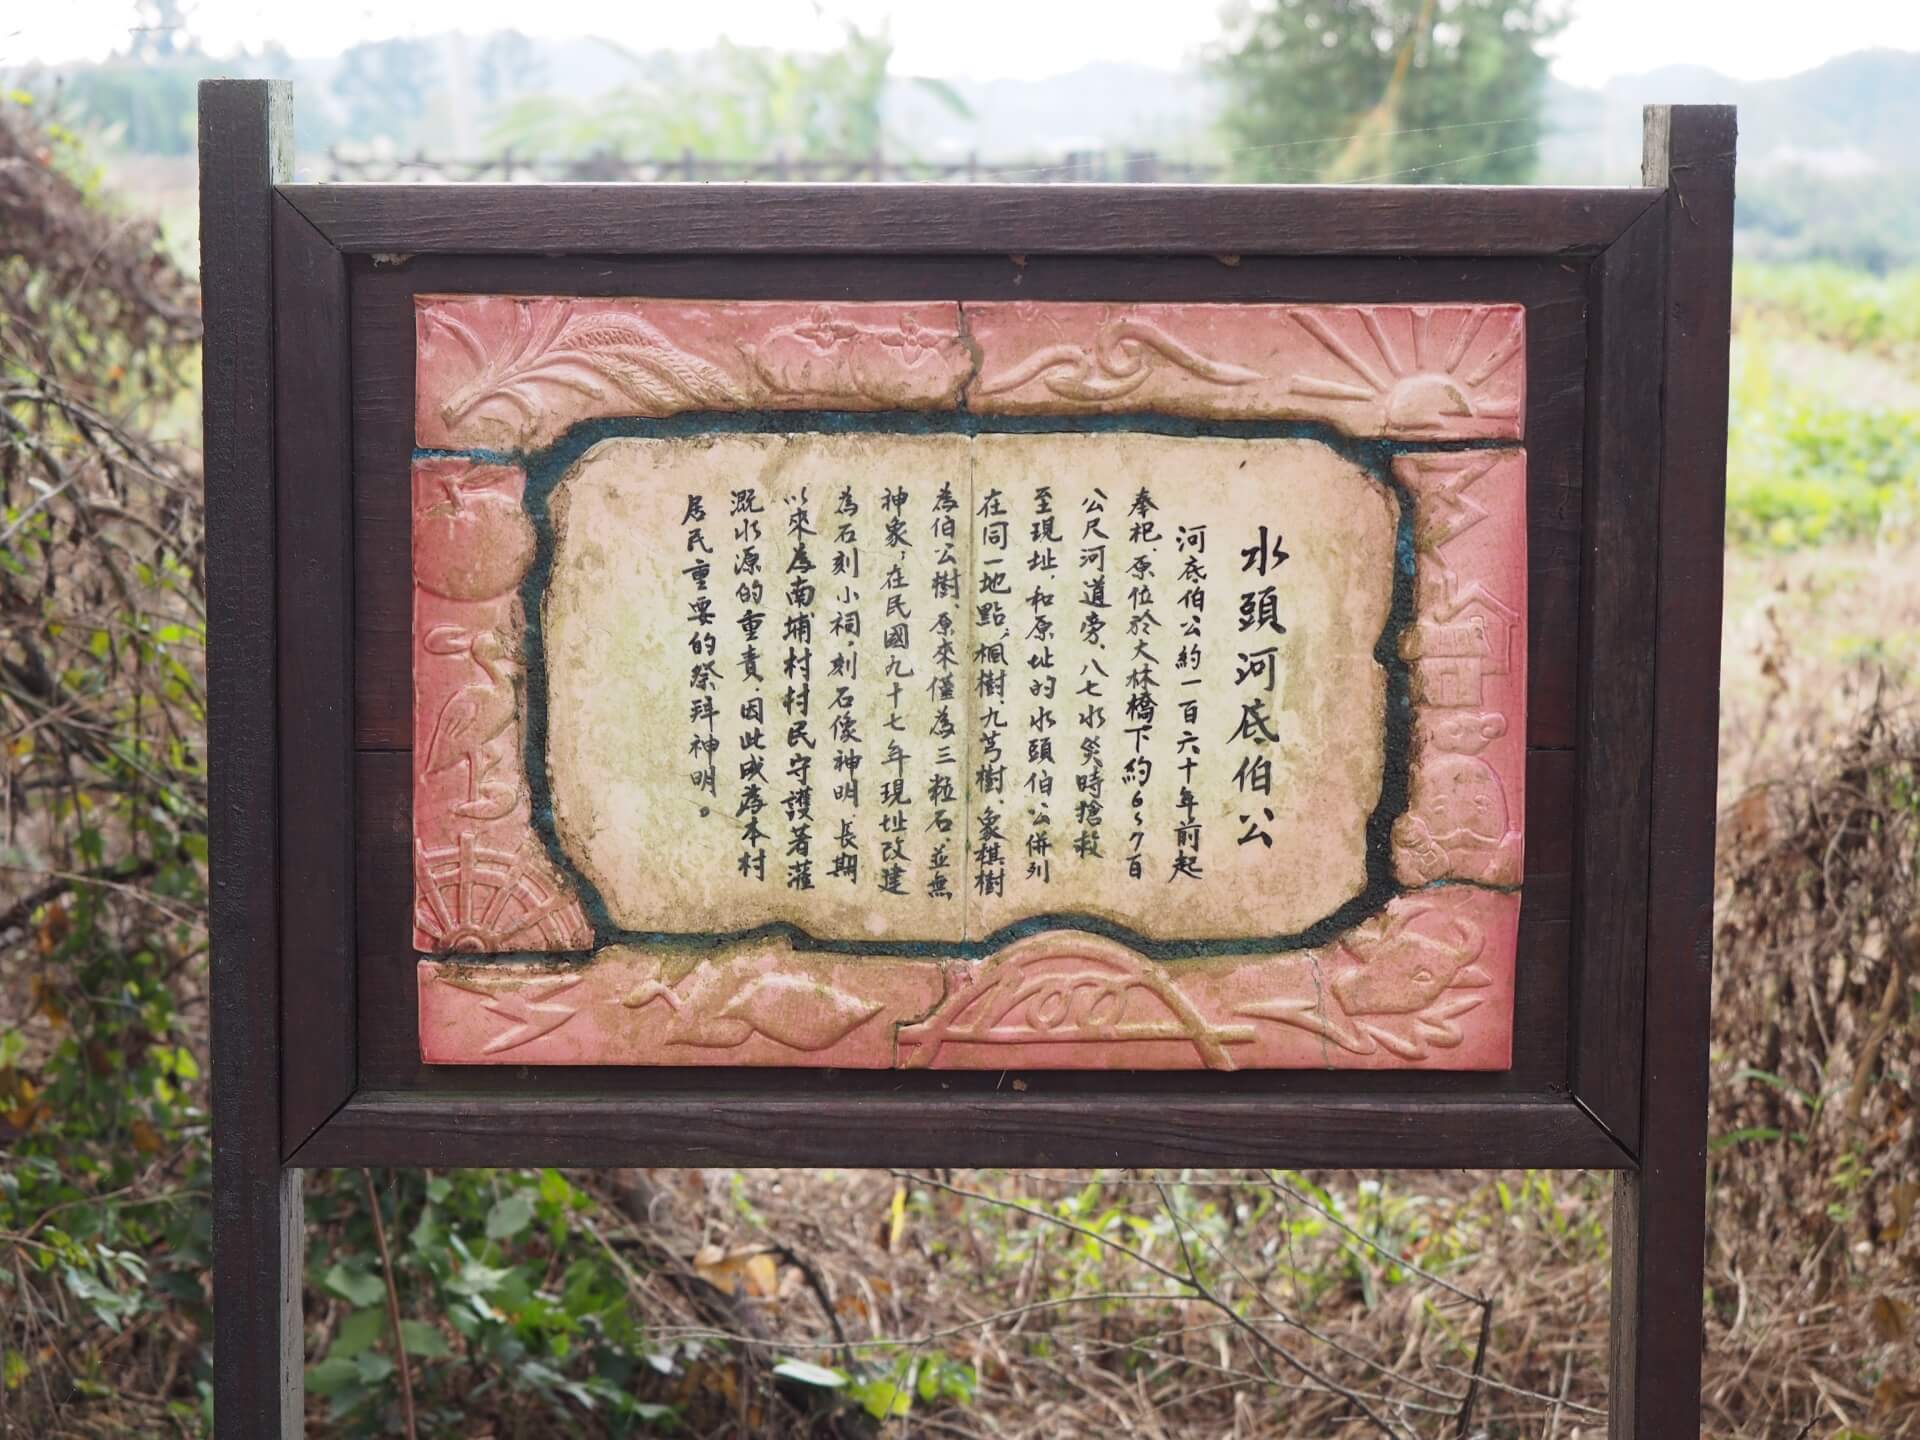 水頭河底伯公
河底伯公約一百六十年前起
奉祀、原位於大林橋下約6~7百
公尺河道旁、八七水災時搶救
至現址，和原址的水頭伯公併列
在同一地點，楓樹、九芎樹、象棋樹
為伯公樹、原來僅為三粒石、並無
神象，在民國九十七年現址改建
為石刻小祠，刻石像神明、長期
以來為南埔村村民守護著灌
溉水源的重責，因此成為本村
居民重要的祭拜神明。